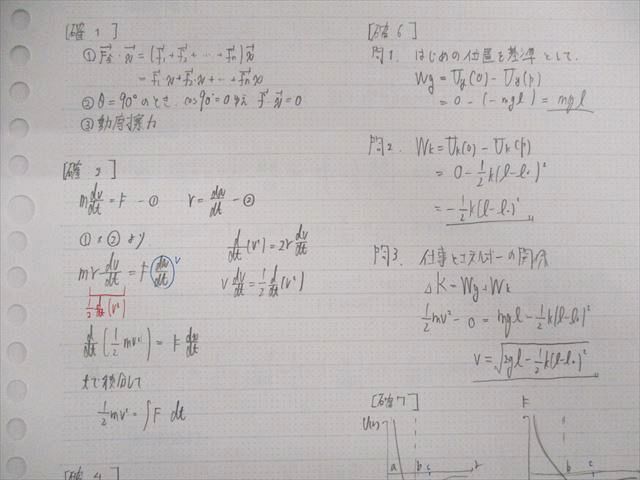 [確 1]
① F合・x = (f₁+f₂+‥+fn)x
= f₁・x+f₂・x+‥+fn x
② θ=90°のとき. cos90°=0ゆえ f・x=0
③ 動摩擦力
[確 2]
m dv/dt = F －① v = dx/dt －②
① x ② より
mv dv/dt = F dx/dt v
1/2 d/dt (v²)
d/dt (v²) = 2v dv/dt
v dv/dt = 1/2 d/dt (v²)
d/dt (1/2 mv²) = F dx/dt
tで積分して
1/2 mv² = ∫F dt
[確 4]
[確 6]
問1. はじめの位置を基準として.
Wg = Ug(0) - Ug(p)
= 0 - (-mgl) = mgl
問2. Wk = Uk(0) - Uk(p)
= 0 - 1/2 k(l-l₀)²
= -1/2 k(l-l₀)²
問3. 仕事とエネルギーの関係
ΔK = Wg + Wk
1/2 mv² - 0 = mgl - 1/2 k(l-l₀)²
v = √2gl - 1/2 k(l-l₀)²
[確 7]
a b c r
F
b c